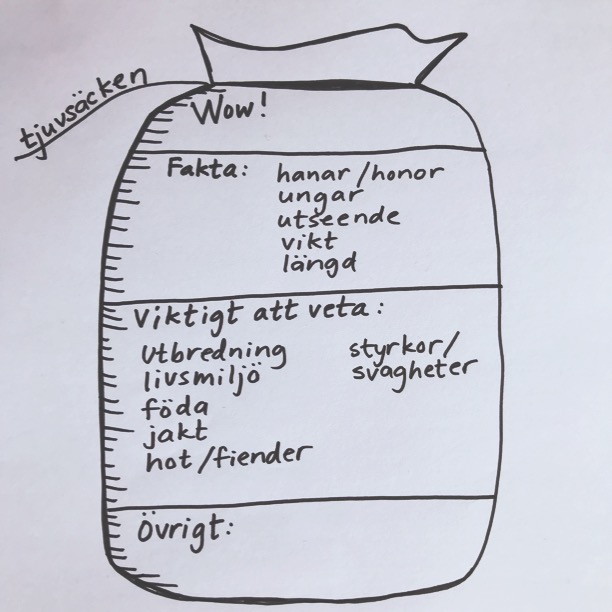 tjuvsäcken
Wow!
Fakta: hanar/honor
ungar
utseende
vikt
längd
Viktigt att veta:
Utbredning
livsmiljö
föda
jakt
hot/fiender
styrkor/
svagheter
Övrigt: